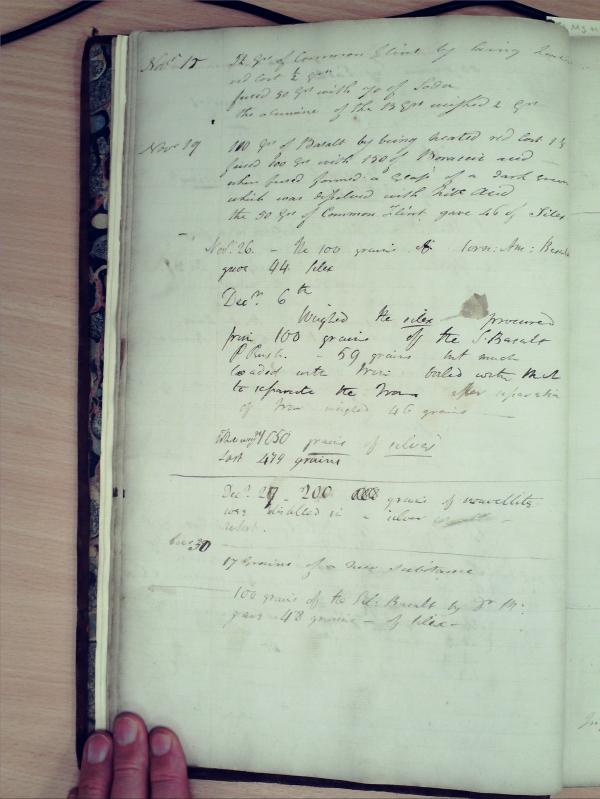 Novr 15 52 Grs of Common Flint by being
red lost ½
fused 50 Grs with 70 of Soda
the alumine of the 13 Grs weighed 2 Grs
Novr 19 100 Grs of Basalt by being heated red lost 1½
fused 100 Grs with 150 of Boracic acid
when fused formed a glass of a dark
which was dissolved with Nitric Acid
the 50 Grs of Common Flint gave 46 of Silex
Novr 26. - The 100 grains of
gave 44 Silex
Decr 6th
Weighed the silex procured
from 100 grains of the S. Basalt
- 59 grains but much
loaded with Iron boiled with
to separate the Iron after separation
of Iron weighed 46 grains
1050 grains of silver
Lost 479 grains
Decr 27 - 200 grains of wavellite
was distilled in a silver
retort.
Decr 30
17 Grains of a New Substance
100 grains of the Basalt by Dr M:
gave 48 grains - of Silex -